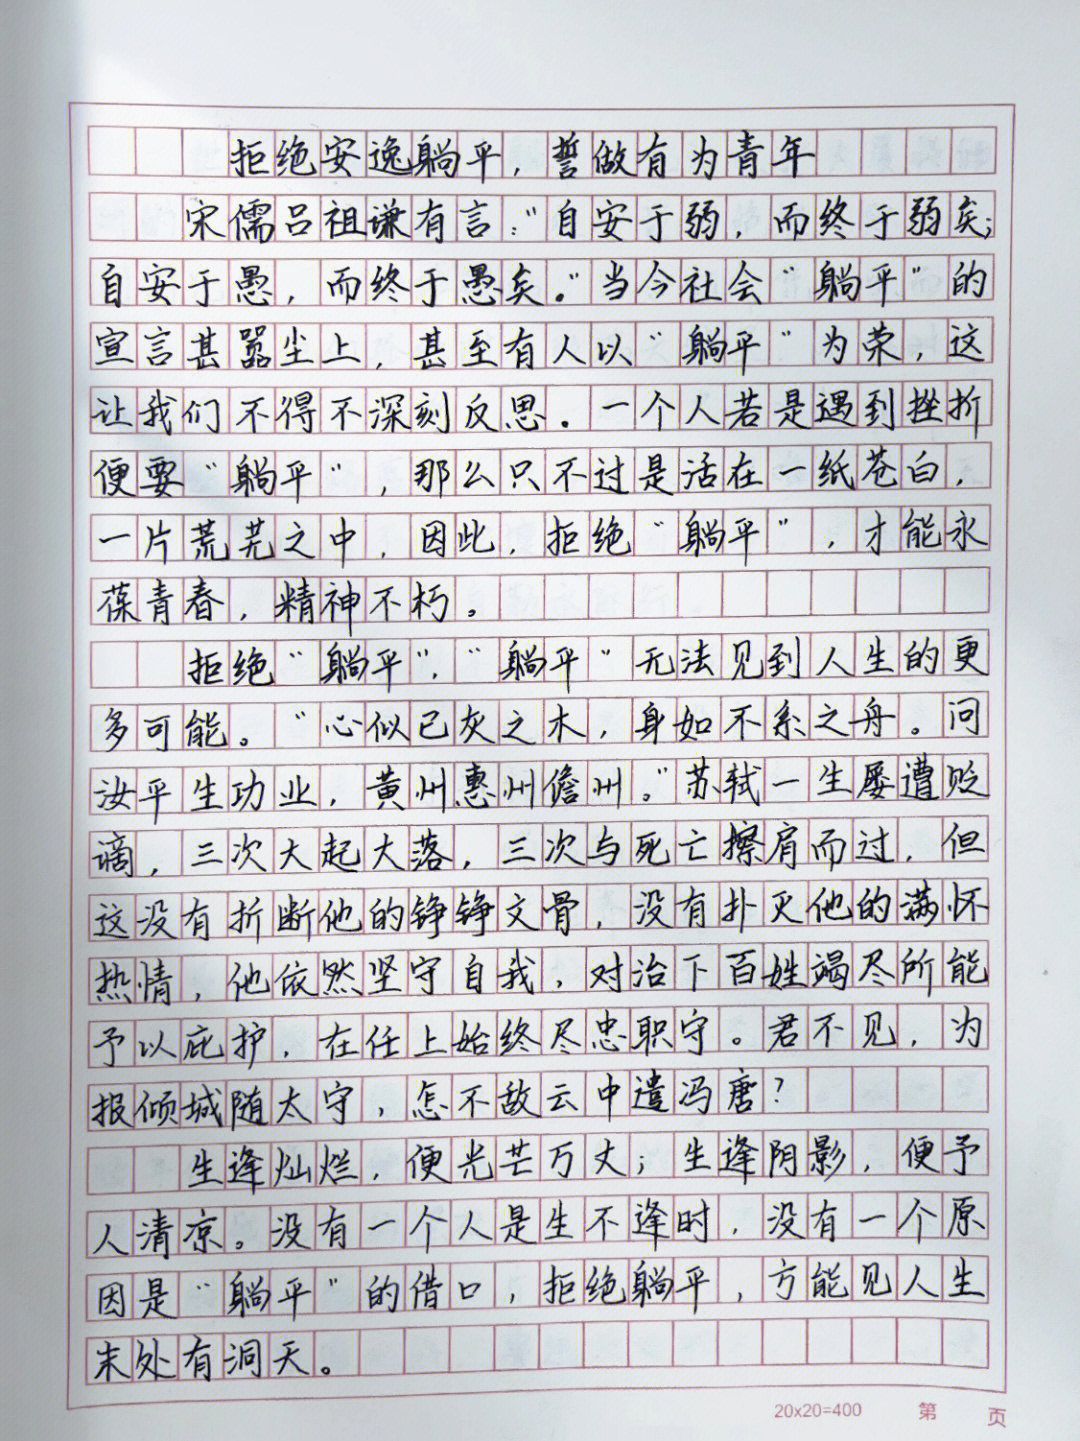 拒绝安逸躺平，誓做有为青年
宋儒吕祖谦有言：“自安于弱，而终于弱矣；
自安于愚，而终于愚矣。”当今社会“躺平”的
宣言甚嚣尘上，甚至有人以“躺平”为荣，这
让我们不得不深刻反思。一个人若是遇到挫折
便要“躺平”，那么只不过是活在一纸苍白，
一片荒芜之中，因此，拒绝“躺平”，才能永
葆青春，精神不朽。
拒绝“躺平”，“躺平”无法见到人生的更
多可能。“心似已灰之木，身如不系之舟。问
汝平生功业，黄州惠州儋州。”苏轼一生屡遭贬
谪，三次大起大落，三次与死亡擦肩而过，但
这没有折断他的铮铮文骨，没有扑灭他的满怀
热情，他依然坚守自我，对治下百姓竭尽所能
予以庇护，在任上始终尽忠职守。君不见，为
报倾城随太守，怎不敌云中遣冯唐？
生逢灿烂，便光芒万丈；生逢阴影，便予
人清凉。没有一个人是生不逢时，没有一个原
因是“躺平”的借口，拒绝躺平，方能见人生
末处有洞天。
20x20=400 第 页